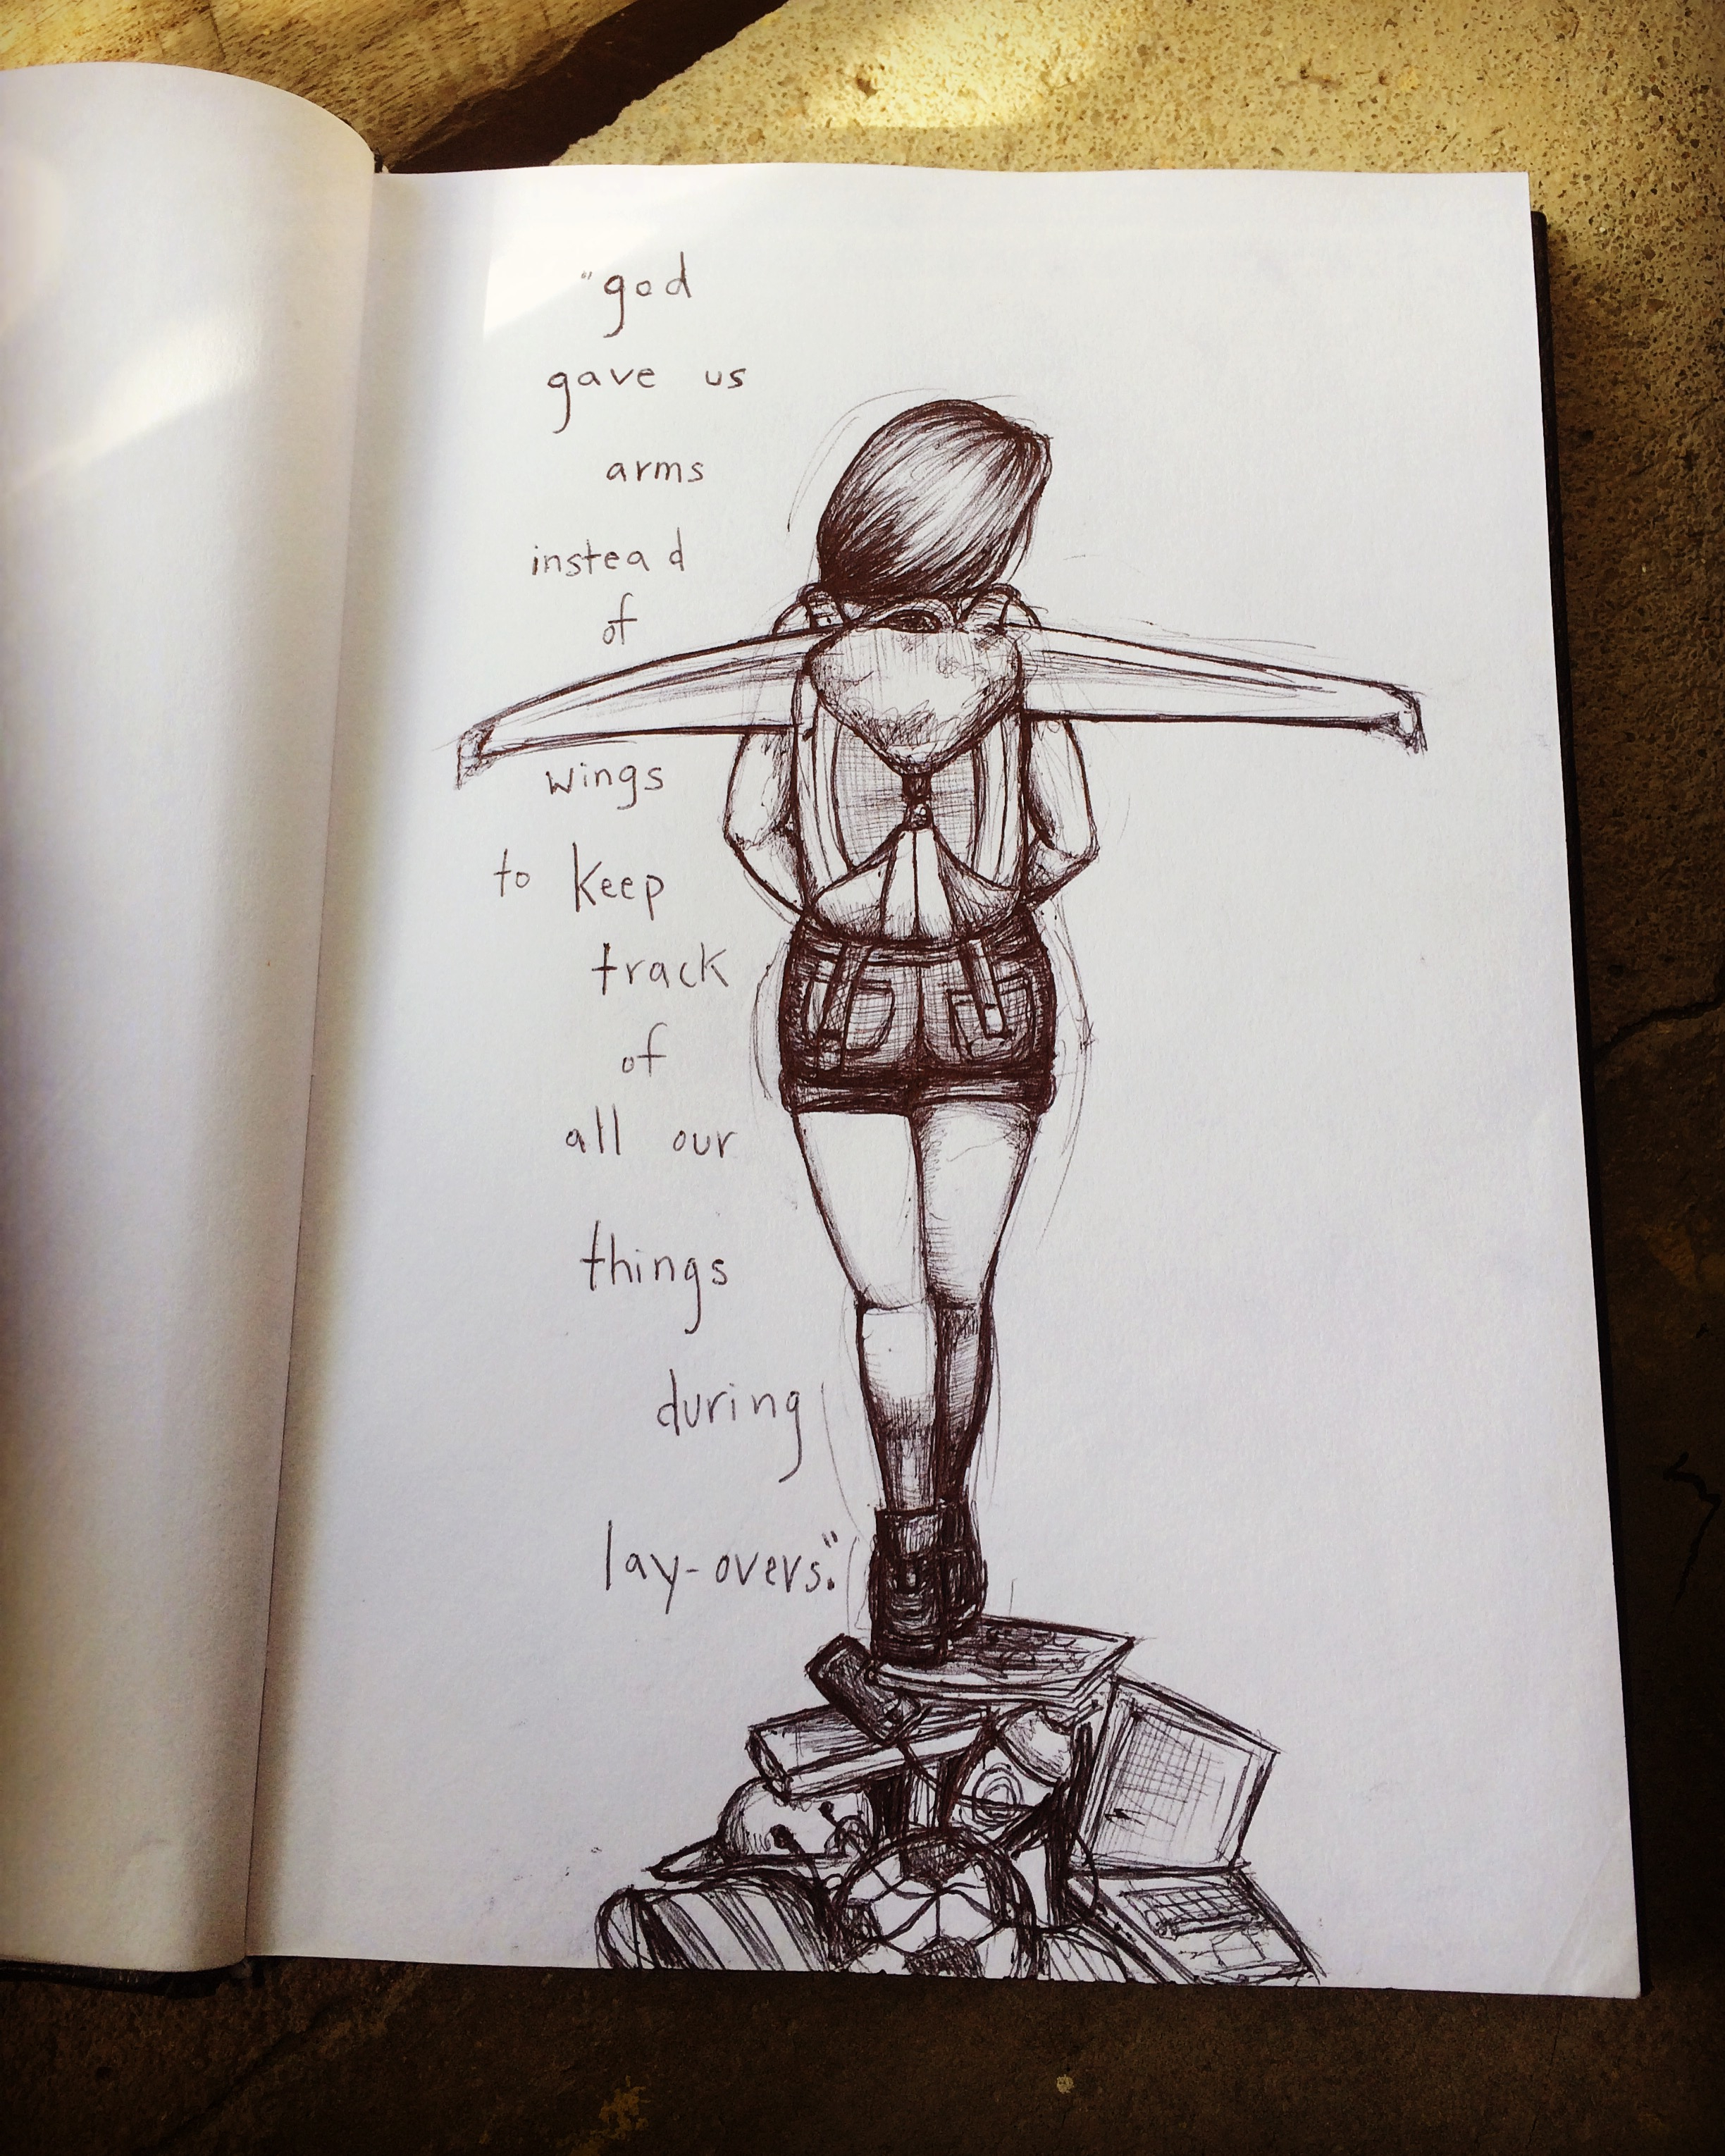 "god
gave us
arms
instead
of
wings
to keep
track
of
all our
things
during
lay-overs."